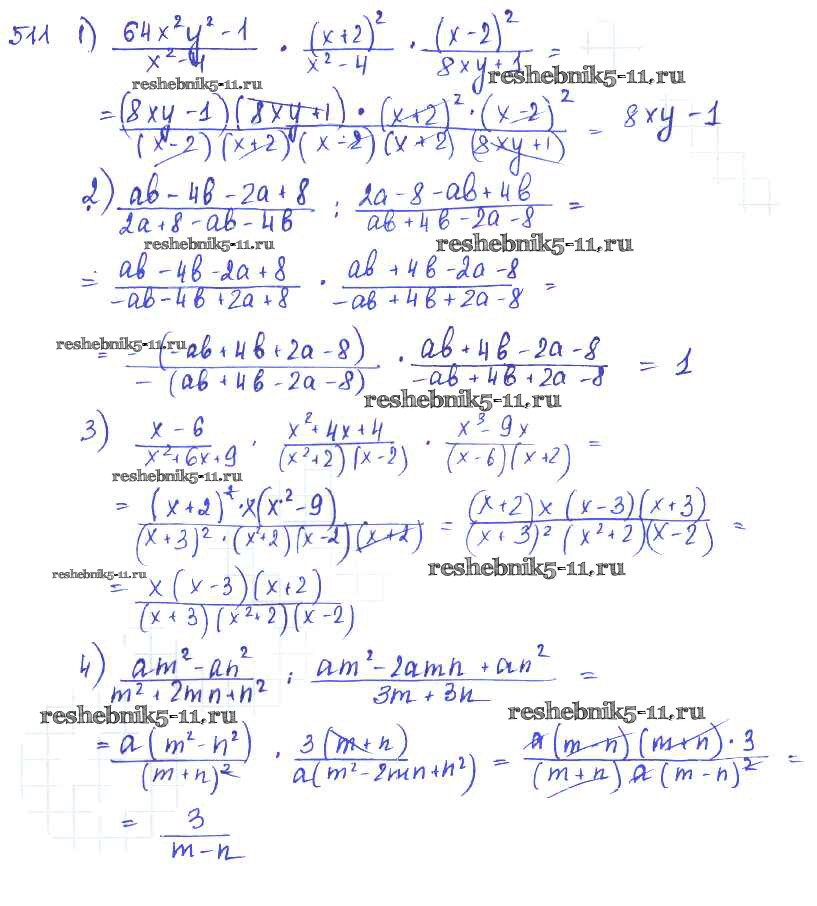 511 1) (64x²y² - 1)/(x² - 4) · (x+2)²/(x² - 4) · (x-2)²/(8xy + 1) =
reshebnik5-11.ru reshebnik5-11.ru
= ((8xy - 1)(8xy + 1) · (x+2)² · (x-2)²)/((x-2)(x+2)(x-2)(x+2)(8xy+1)) = 8xy - 1
2) (ab - 4b - 2a + 8)/(2a + 8 - ab - 4b) : (2a - 8 - ab + 4b)/(ab + 4b - 2a - 8) =
reshebnik5-11.ru reshebnik5-11.ru
= (ab - 4b - 2a + 8)/(-ab - 4b + 2a + 8) · (ab + 4b - 2a - 8)/(-ab + 4b + 2a - 8) =
reshebnik5-11.ru
= -(-ab + 4b + 2a - 8)/-(ab + 4b - 2a - 8) · (ab + 4b - 2a - 8)/(-ab + 4b + 2a - 8) = 1
reshebnik5-11.ru
3) (x - 6)/(x² + 6x + 9) · (x² + 4x + 4)/((x² + 2)(x - 2)) · (x³ - 9x)/((x - 6)(x + 2)) =
reshebnik5-11.ru
= ((x+2)² · x(x² - 9))/((x+3)² · (x²+2)(x-2)(x+2)) = ((x+2)x(x-3)(x+3))/((x+3)²(x²+2)(x-2)) =
reshebnik5-11.ru reshebnik5-11.ru
= (x(x-3)(x+2))/((x+3)(x²+2)(x-2))
4) (am² - an²)/(m² + 2mn + n²) : (am² - 2amn + an²)/(3m + 3n) =
reshebnik5-11.ru reshebnik5-11.ru
= a(m² - n²)/(m+n)² · 3(m+n)/a(m² - 2mn + n²) = (a(m-n)(m+n) · 3)/((m+n)a(m-n)²) =
= 3/(m - n)